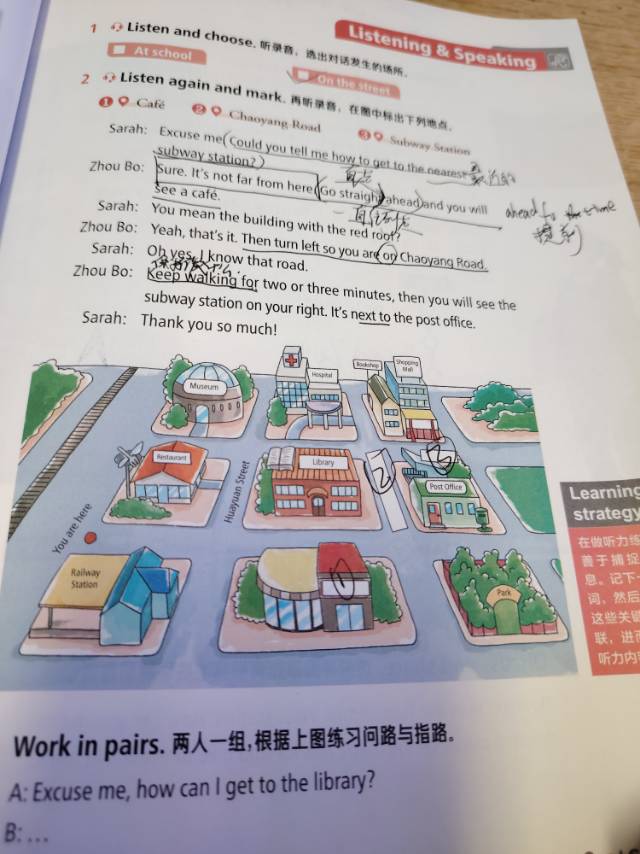 Listening & Speaking
1 Listen and choose. 听录音，选出对话发生的场所。
At school
On the street
2 Listen again and mark. 再听录音，在图中标出下列地点。
❶ Café
❷ Chaoyang Road
❸ Subway Station
Sarah: Excuse me. Could you tell me how to get to the nearest
subway station?
Zhou Bo: Sure. It's not far from here. Go straight ahead and you will
see a café.
ahead of time
提到
Sarah: You mean the building with the red roof?
Zhou Bo: Yeah, that's it. Then turn left so you are on Chaoyang Road.
Sarah: Oh yes, I know that road.
Zhou Bo: Keep walking for two or three minutes, then you will see the
subway station on your right. It's next to the post office.
Sarah: Thank you so much!
Museum
Hospital
Bookshop
Shopping
Mall
Restaurant
Huayuan Street
Library
2
3
Post Office
You are here
Railway
Station
1
Park
Learning
strategy
在做听力练
善于捕捉
息，记下
词，然后
这些关键
联，进
听力内
Work in pairs. 两人一组,根据上图练习问路与指路。
A: Excuse me, how can I get to the library?
B: ...